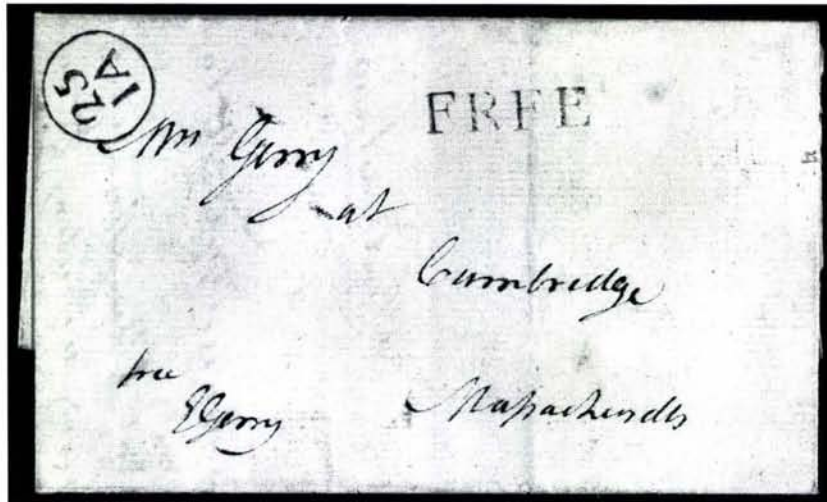 25
IA
FREE
Mrs Gerry
at
Cambridge
free
EGerry
Massachusetts